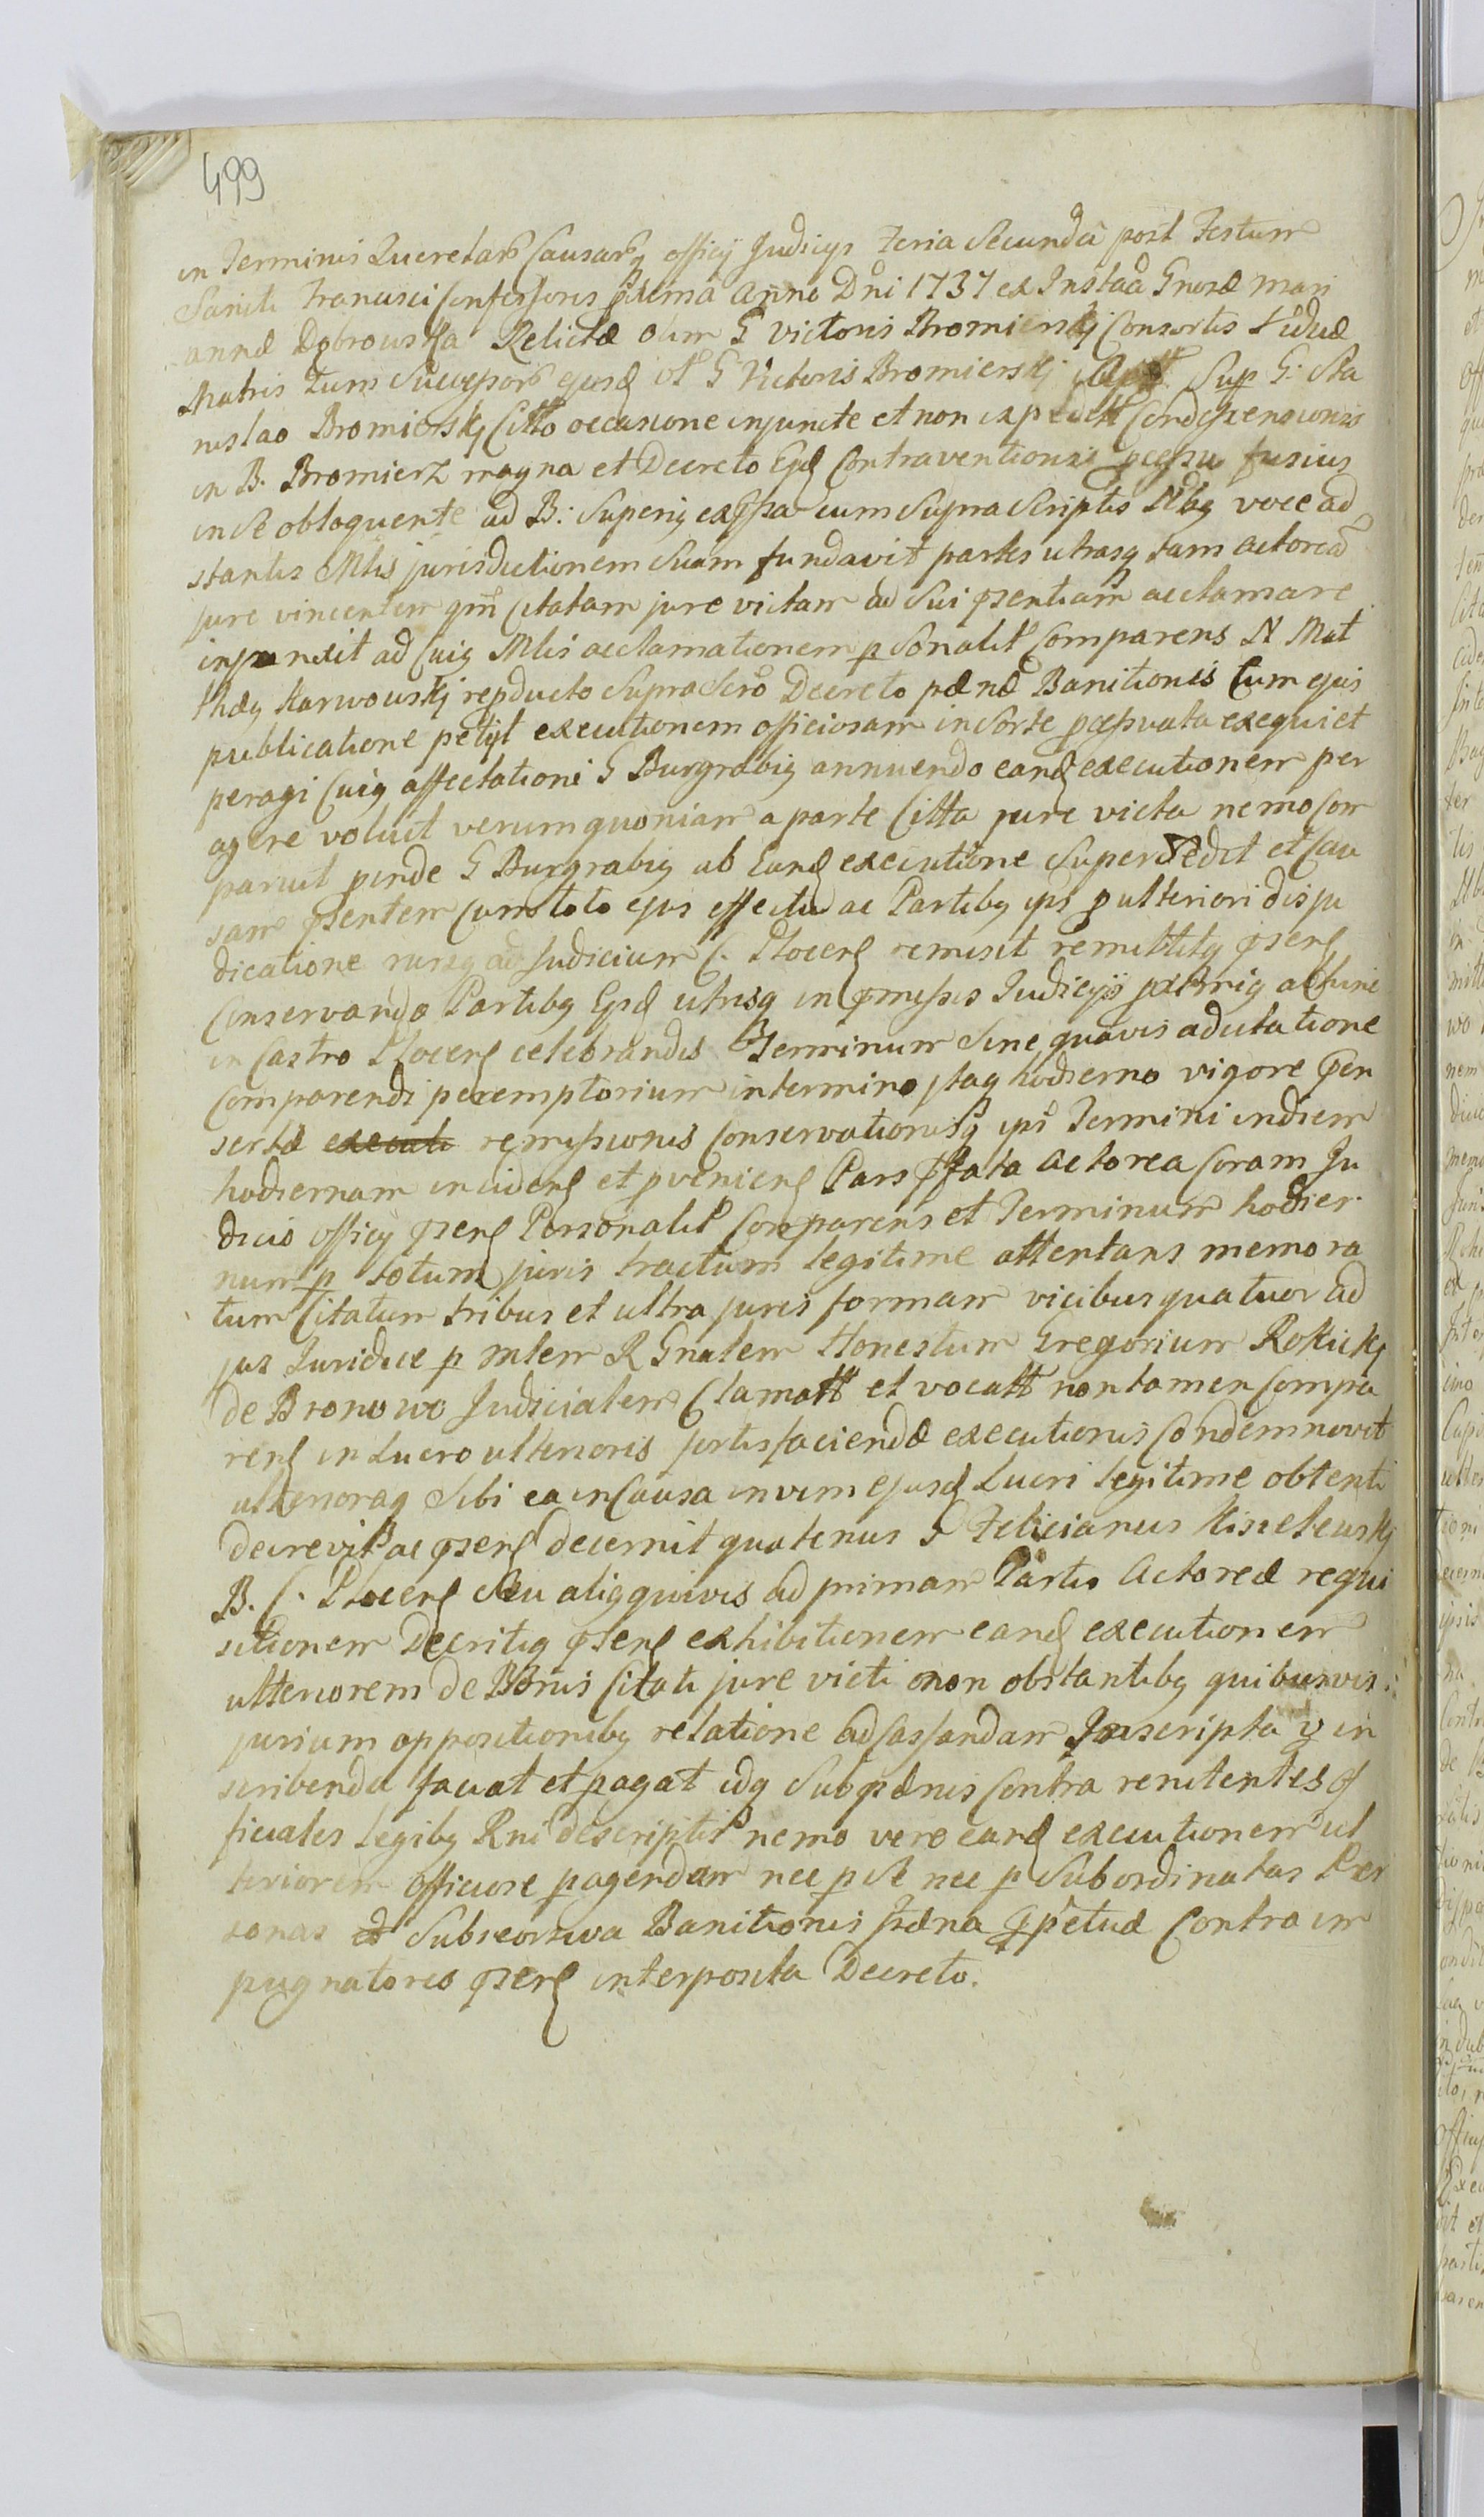 499
in Terminis Querelar Causarq officij Judicys Feria Secunda post Festum
Sancti Francisci Confessoris proxima Anno Dni 1737 ex Instaa Gnosae Mari
annae Dobrowska Relictae olim G Victoris Bromierskj Consortis Viduae
Matris tum Successor ejusd ol G Victoris Bromierskj Sup G: Sta
nislao Bromierskj Citto occasione injuncte et non expeditt Condescensionis
in B. Bromierz magna et Decreto Epd Contraventionis pcessu fusius
in se obloquente ad B: Superiq expssa cum Supra Scriptis Nbq voce ad
stantis Mlis jurisdictionem Suam fundavit partes utrasq tam actorea
jure vincentem qm Citatam jure victam ad Sui psentiam acclamare
injunxit ad Cuiq Mlis acclamationem p sonalit Comparens N Mat
thaeq Karwowskj repducto Suprascro Decreto paenae Banitionis Cum ejus
publicatione petijt executionem officiosam in sorte pcessuata exequi et
peragi Cuiq affectationi G Burgrabiq annuendo eand executionem per
agere voluit verum quoniam a parte Citta jure victa nemo Com
paruit pinde G Burgrabiq ab Eand executione Supersedit et Cau
sam psentem Cum toto ejus effectu ac Partibq ips p ulteriori disju
dicatione rursq ad Judicium C. Plocens remisit remittitq psens
Conservando Partibq Epd utrisq in pmissis Judicijs
in Castro Plocens celebrandis Terminum Sine quavis adcitatione
Comparendi peremptorium in termino itaq hodierno vigore psen
sertae executi remissionis Conservationisq ips Termini in diem
hodiernam incidens et pveniens Pars pfata Actorea Coram Ju
dicio officij psens Personalit Comparens et Terminum hodier
num p totum juris tractum legitime attentans memora
tum Citatum tribus et ultra juris formam vicibus quatuor ad
jus Juridice p Mlem R Gnalem Honestum Gregorium Rokickj
de Bronowo Judicialem Clamatt et vocatt non tamen Compa
rens in Lucro ulterioris satisfaciendae executionis Condemnavit
ulterioraq Sibi ea in Causa in vim ejusd Lucri legitime obtenti
decrevit ac psens decernit quatenus G Felicianus Kisielewskj
B. C. Plocens Seu aliq quivis ad primam Partis Actoreae requi
sitionem Decretiq psens exhibitionem eand executionem
ulteriorem de Bonis Citati jure victi non obstantibq quibusvis
jurium oppositionibq relatione ad Cassandam Inscripta v in
scribenda faciat et pagat idq Sub paenis Contra renitentes of
ficiales legibq Rni descriptis nemo vero eand executionem ul
teriorem officiose pagendam nec p se nec p Subordinatas Per
sonas Subseorsiva Banitionis paena ppetuae Contra im
pugnatores psens interposita Decreto.